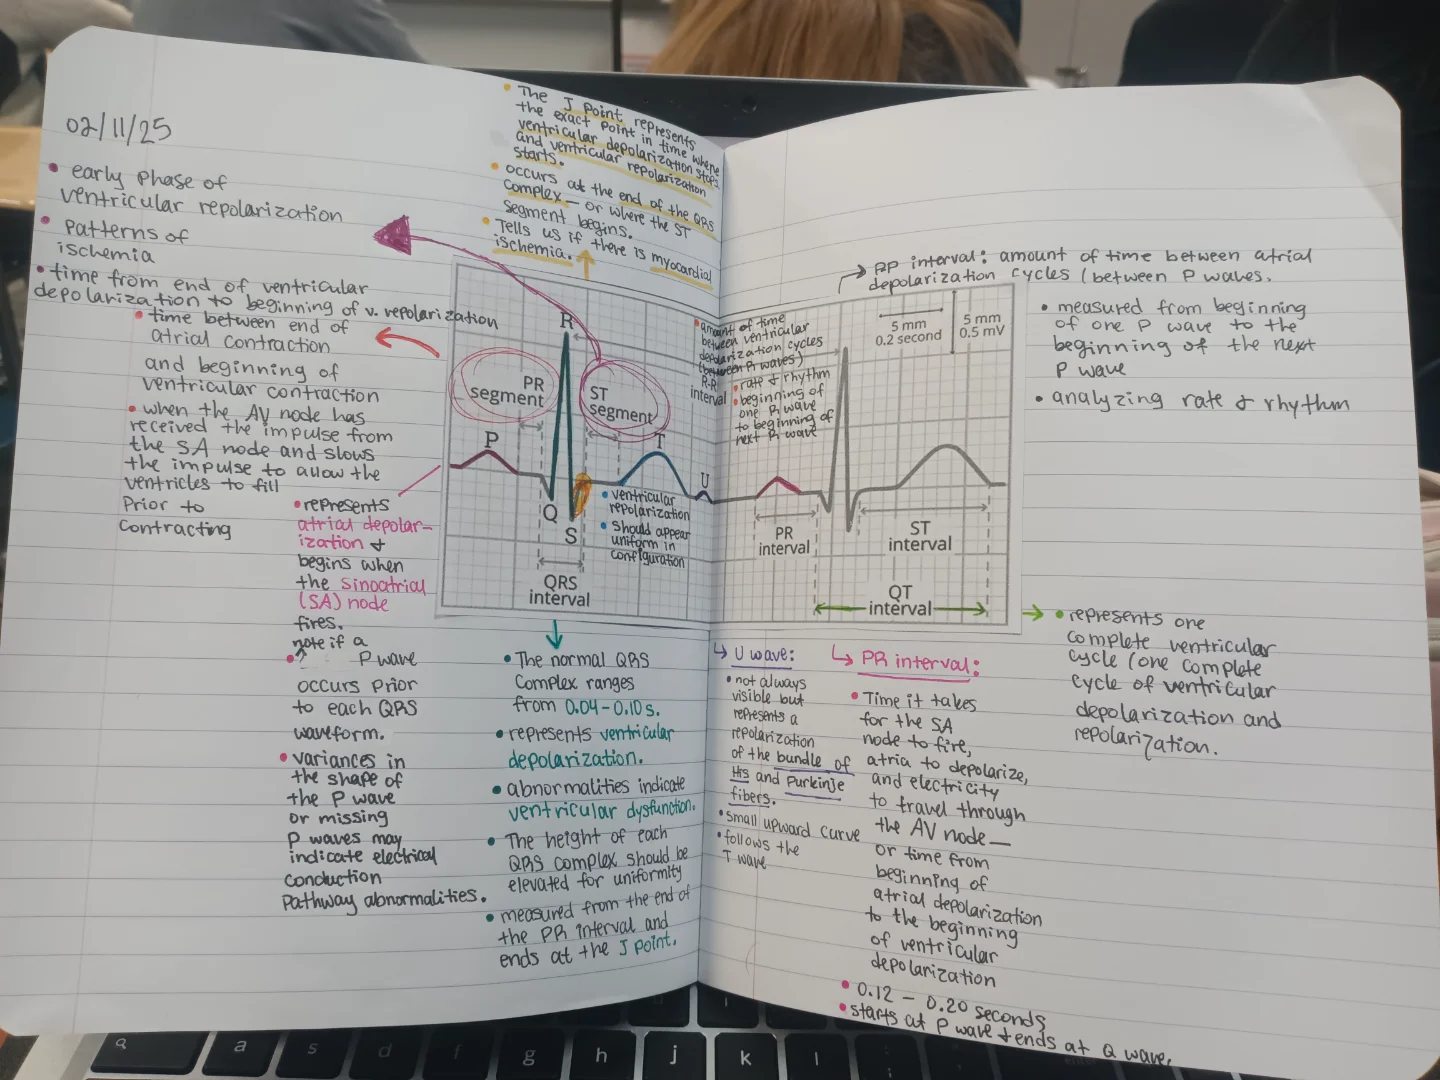 02/11/25
• early phase of
ventricular repolarization
• patterns of
ischemia
• time from end of ventricular
depolarization to beginning of v. repolarization
• time between end of
atrial contraction
and beginning of
ventricular contraction
• when the AV node has
received the impulse from
the SA node and slows
the impulse to allow the
ventricles to fill
Prior to
contracting
• represents
atrial depolar-
ization &
begins when
the sinoatrial
(SA) node
fires.
note if a
P wave
occurs prior
to each QRS
waveform.
• variances in
the shape of
the P wave
or missing
P waves may
indicate electrical
conduction
pathway abnormalities.
• The J Point represents
the exact point in time where
ventricular depolarization stops
and ventricular repolarization
starts.
• occurs at the end of the QRS
complex — or where the ST
segment begins.
• Tells us if there is myocardial
ischemia.
R
PR
segment
ST
segment
P
T
U
Q
S
QRS
interval
• ventricular
repolarization
• Should appear
uniform in
configuration
• amount of time
between ventricular
depolarization cycles
(between R waves)
R-R
interval
• rate & rhythm
• beginning of
one R wave
to beginning of
next R wave
5 mm
0.2 second
5 mm
0.5 mV
PR
interval
ST
interval
QT
interval
• The normal QRS
complex ranges
from 0.04-0.10s.
• represents ventricular
depolarization.
• abnormalities indicate
ventricular dysfunction.
• The height of each
QRS complex should be
elevated for uniformity
• measured from the end of
the PR interval and
ends at the J point.
↳ U wave:
• not always
visible but
represents a
repolarization
of the bundle of
His and Purkinje
fibers.
• small upward curve
• follows the
T wave
↳ PR interval:
• Time it takes
for the SA
node to fire,
atria to depolarize,
and electricity
to travel through
the AV node —
or time from
beginning of
atrial depolarization
to the beginning
of ventricular
depolarization
• 0.12 - 0.20 seconds
• starts at P wave & ends at Q wave.
PP interval: amount of time between atrial
depolarization cycles (between P waves.
• measured from beginning
of one P wave to the
beginning of the next
P wave
• analyzing rate & rhythm
→ • represents one
complete ventricular
cycle (one complete
cycle of ventricular
depolarization and
repolarization.
Q
a
s
d
f
g
h
j
k
l
;